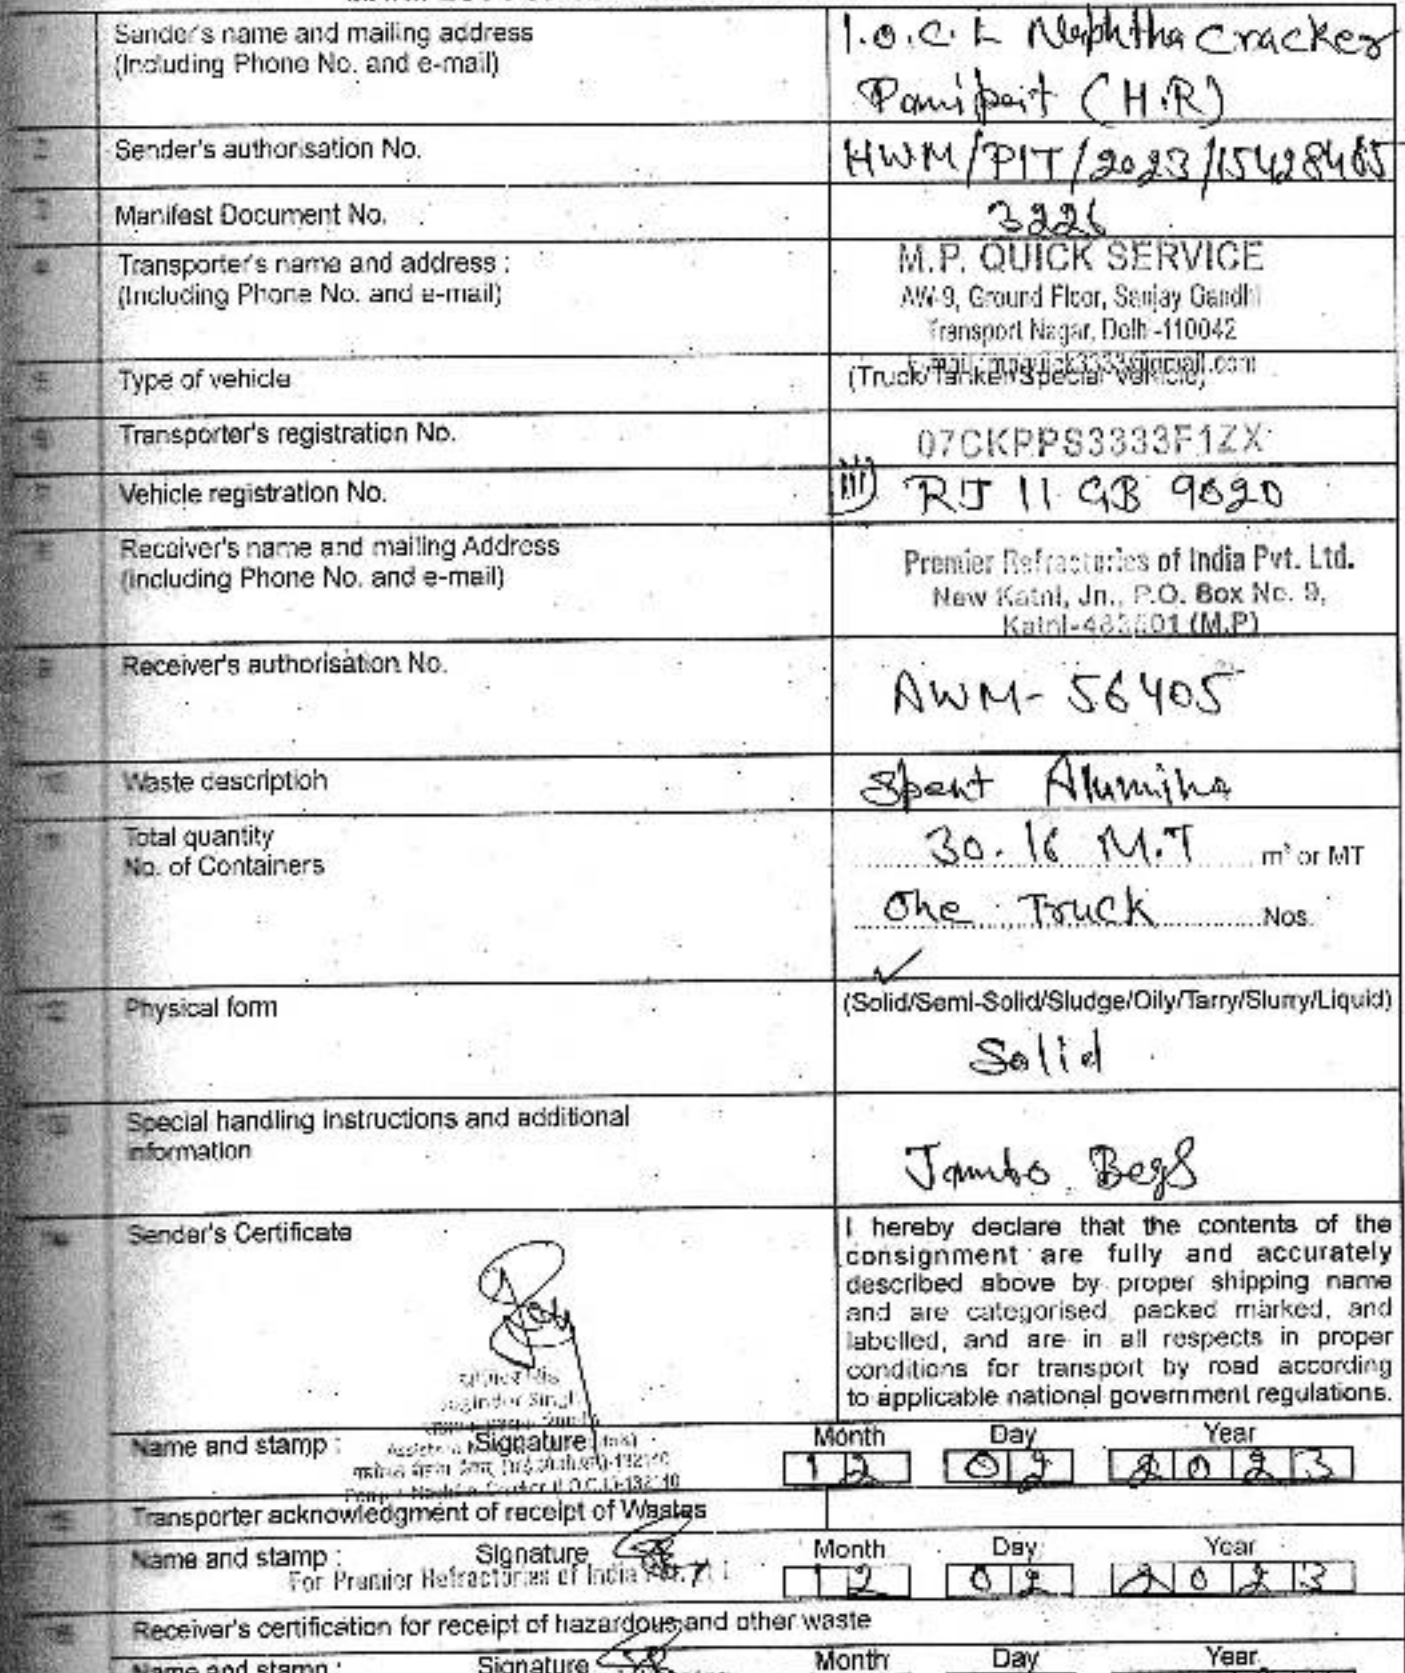 Sender's name and mailing address
(Including Phone No. and e-mail)
I.O.C.L Naphtha Cracker
Panipat (H.R)
Sender's authorisation No.
HWM/PIT/2023/15428465
Manifest Document No.
3226
Transporter's name and address :
(Including Phone No. and e-mail)
M.P. QUICK SERVICE
AW-9, Ground Floor, Sanjay Gandhi
Transport Nagar, Delhi-110042
Type of vehicle
(Truck/Tanker/Special Vehicle)
Transporter's registration No.
07CKPPS3333F1ZX
Vehicle registration No.
RJ 11 GB 9620
Receiver's name and mailing Address
(including Phone No. and e-mail)
Premier Refractories of India Pvt. Ltd.
New Katni, Jn., P.O. Box No. 9,
Katni-483501 (M.P)
Receiver's authorisation No.
AWM- 56405
Waste description
Spent Alumina
Total quantity
No. of Containers
30.16 M.T m³ or MT
One Truck Nos.
Physical form
(Solid/Semi-Solid/Sludge/Oily/Tarry/Slurry/Liquid)
Solid
Special handling Instructions and additional
information
Jambo Begs
Sender's Certificate
I hereby declare that the contents of the
consignment are fully and accurately
described above by proper shipping name
and are categorised, packed marked, and
labelled, and are in all respects in proper
conditions for transport by road according
to applicable national government regulations.
Name and stamp : Signature Month Day Year
12 02 2023
Transporter acknowledgment of receipt of Wastes
Name and stamp : Signature Month Day Year
For Premier Refractories of India
12 02 2023
Receiver's certification for receipt of hazardous and other waste
Name and stamp : Signature Month Day Year